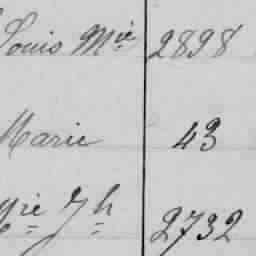 Louis Mie 2898
Marie 43
gie Jh 2732